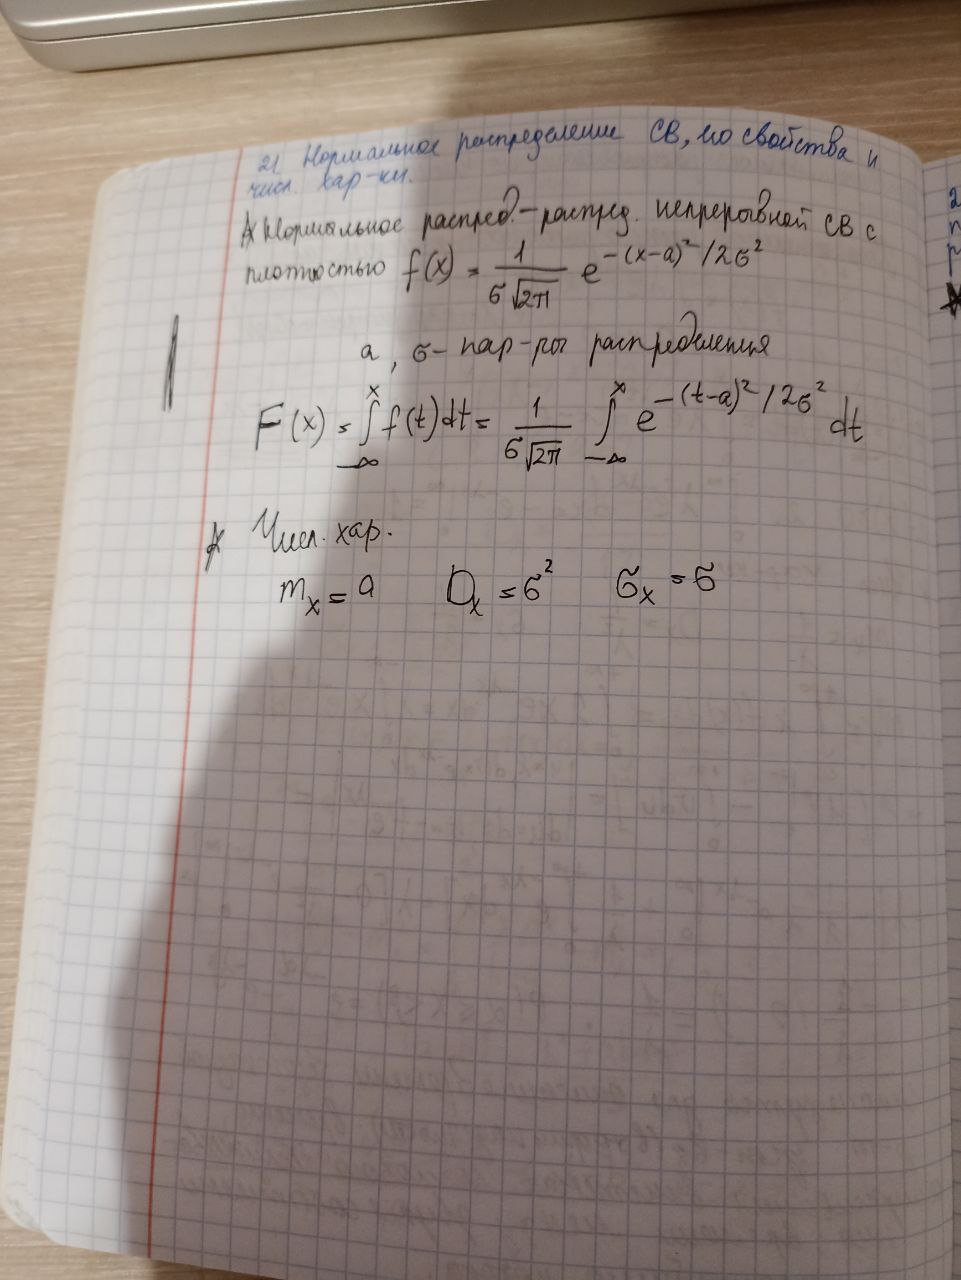 21 Нормальное распределение СВ, его свойства и
числ. хар-ки.
Нормальное распред.-распред. непрерывной СВ с
плотностью f(x) = 1/(σ√2π) e^(-(x-a)²/2σ²)
a, σ- пар-ры распределения
F(x) = ∫_{-∞}^{x} f(t)dt = 1/(σ√2π) ∫_{-∞}^{x} e^(-(t-a)²/2σ²) dt
Числ. хар.
m_x = a D_x = σ² σ_x = σ